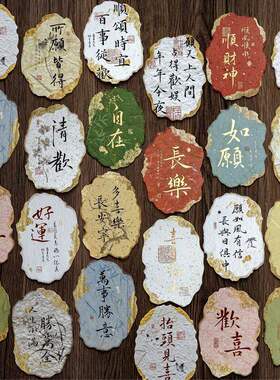 所願皆得
順頌時宜
百事從歡
願天上人間
占得歡娛
年年今夜
順風順水
順財神
清歡
自在
長樂
如願
好運
多喜樂
長安寧
喜
願如風有信
長與日俱中
萬事勝意
抬頭見喜
歡喜